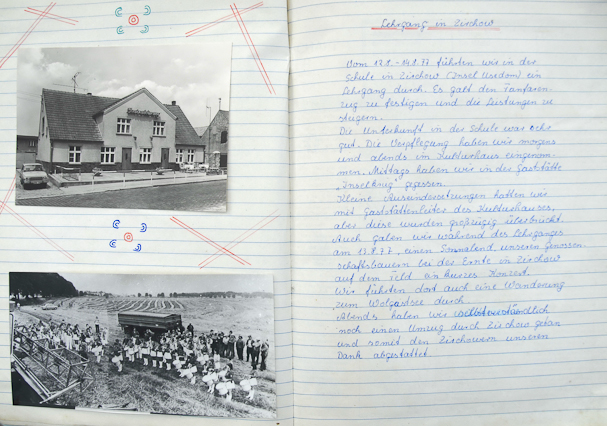 Lehrgang in Zirchow
Vom 12.8.-14.8.77 führten wir in der
Schule in Zirchow (Insel Usedom) ein
Lehrgang durch. Es galt den Fanfaren-
zug zu festigen und die Leistungen zu
steigern.
Die Unterkunft in der Schule war sehr
gut. Die Verpflegung haben wir morgens
und abends im Kulturhaus eingenom-
men. Mittags haben wir in der Gaststätte
"Inselkrug" gegessen.
Kleine Auseinandersetzungen hatten wir
mit Gaststättenleiter des Kulturhauses,
aber diese wurden großzügig überbrückt.
Auch gaben wir während des Lehrganges
am 13.8.77, einen Sonnabend, unseren Genossen-
schaftsbauern bei der Ernte in Zirchow
auf dem Feld ein kurzes Konzert.
Wir führten dort auch eine Wanderung
zum Wolgastsee durch.
Abends haben wir selbstverständlich
noch einen Umzug durch Zirchow getan
und somit den Zirchowern unseren
Dank abgestattet.